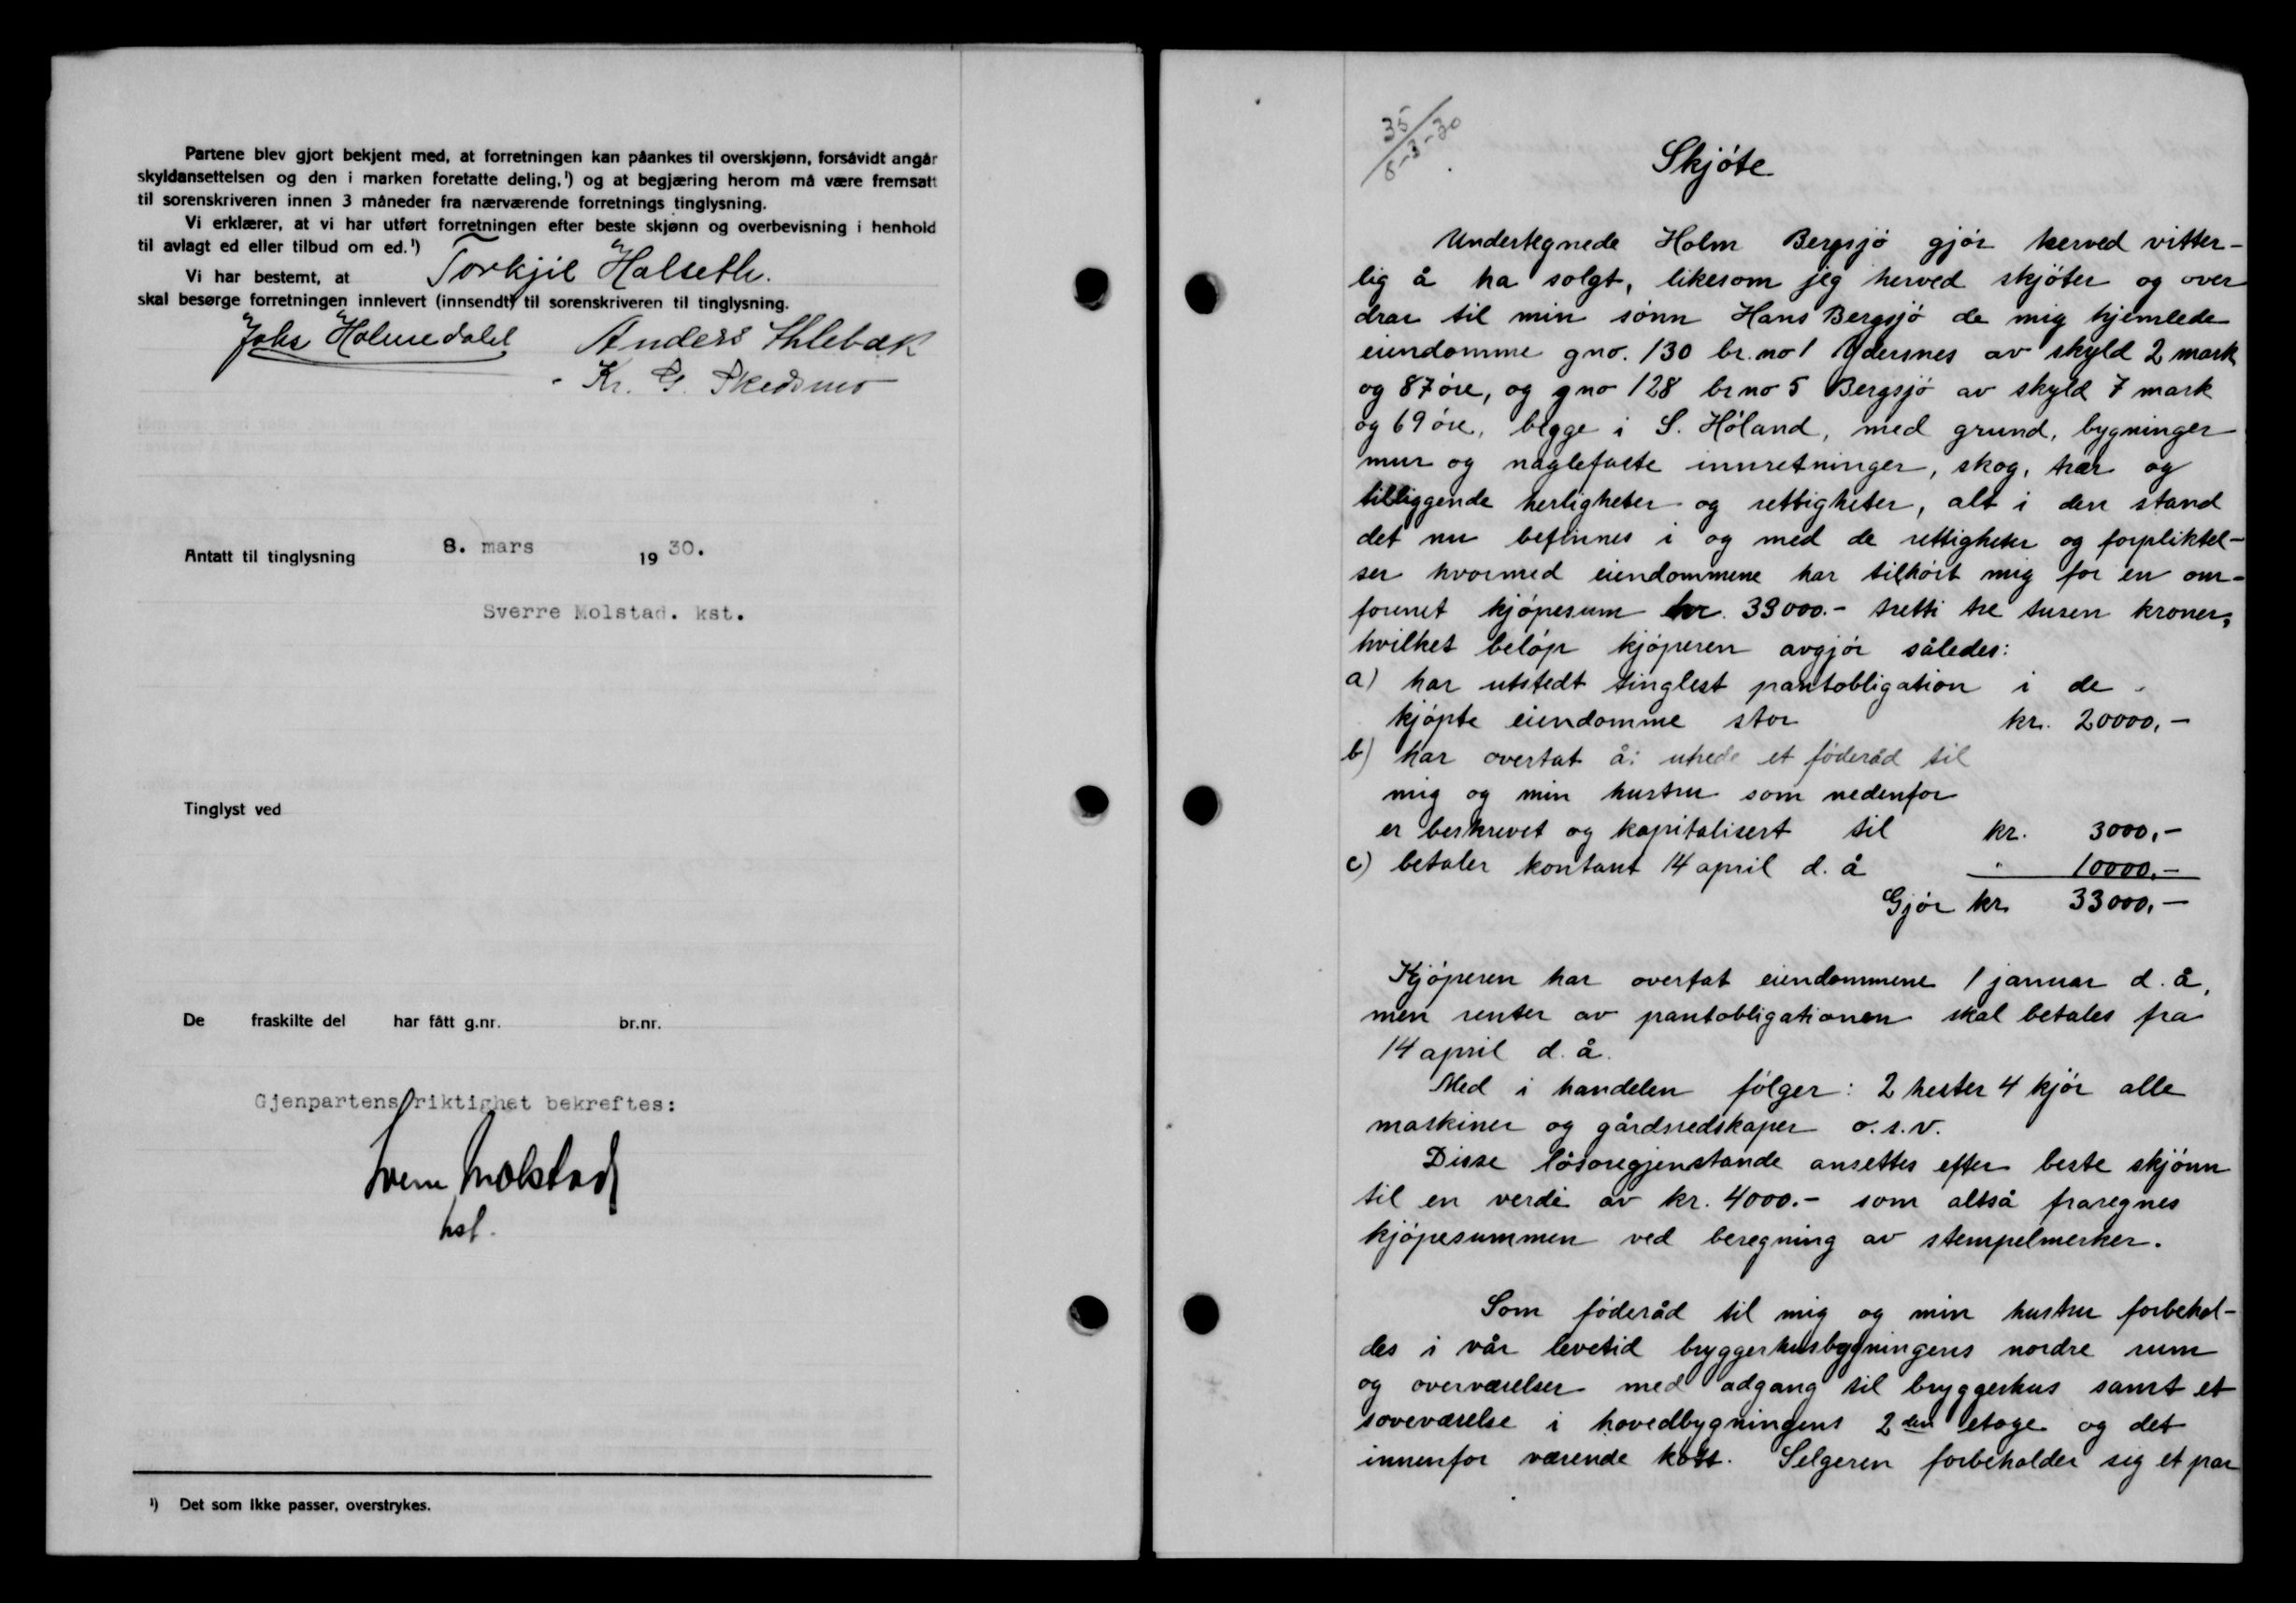 Partene blev gjort bekjent med, at forretningen kan påankes til overskjønn, forsåvidt angår
skyldansettelsen og den i marken foretatte deling,¹) og at begjæring herom må være fremsatt
til sorenskriveren innen 3 måneder fra nærværende forretnings tinglysning.
Vi erklærer, at vi har utført forretningen efter beste skjønn og overbevisning i henhold
til avlagt ed eller tilbud om ed.¹)
Vi har bestemt, at Torkjil Halseth.
skal besørge forretningen innlevert (innsendt) til sorenskriveren til tinglysning.
Johs Holmedahl Anders
Kr. G. Skedsmo
Antatt til tinglysning 8. mars 1930.
Sverre Molstad. kst.
Tinglyst ved
De fraskilte del har fått g.nr. br.nr.
Gjenpartens riktighet bekreftes:
Sverre Molstad
kst.
¹) Det som ikke passer, overstrykes.
35/8-3-30
Skjöte
Undertegnede Holm Bergsjö gjör herved vitter-
lig å ha solgt, likesom jeg herved skjöter og over
drar til min sönn Hans Bergsjö de mig hjemlede
eiendomme gno. 130 br.no 1 Ydersnes av skyld 2 mark
og 87 öre, og gno 128 brno 5 Bergsjö av skyld 7 mark
og 69 öre, begge i S. Höland, med grund, bygninger
mur og naglefaste innretninger, skog, trær og
tilliggende herligheter og rettigheter, alt i den stand
det nu befinnes i og med de rettigheter og forpliktel-
ser hvormed eiendommene har tilhört mig for en om-
forenet kjöpesum kr. 33000.- tretti tre tusen kroner,
hvilket belöp kjöperen avgjör således:
a) har utstedt tinglest pantobligation i de
kjöpte eiendomme stor kr. 20000,-
b) har overtat å utrede et föderåd til
mig og min hustru som nedenfor
er beskrevet og kapitalisert til kr. 3000,-
c) betaler kontant 14 april d. å " 10000,-
Gjör kr 33000,-
Kjöperen har overtat eiendommene 1 januar d. å,
men renter av pantobligationen skal betales fra
14 april d. å.
Med i handelen fölger: 2 hester 4 kjör alle
maskiner og gårdsredskaper o.s.v.
Disse lösöregjenstande ansettes efter beste skjönn
til en verdi av kr. 4000.- som altså fraregnes
kjöpesummen ved beregning av stempelmerker.
Som föderåd til mig og min hustru forbehol-
des i vår levetid bryggerhusbygningens nordre rum
og overværelser med adgang til bryggerhus samt et
soveværelse i hovedbygningens 2den etage og det
innenfor værende kott. Selgeren forbeholder sig et par